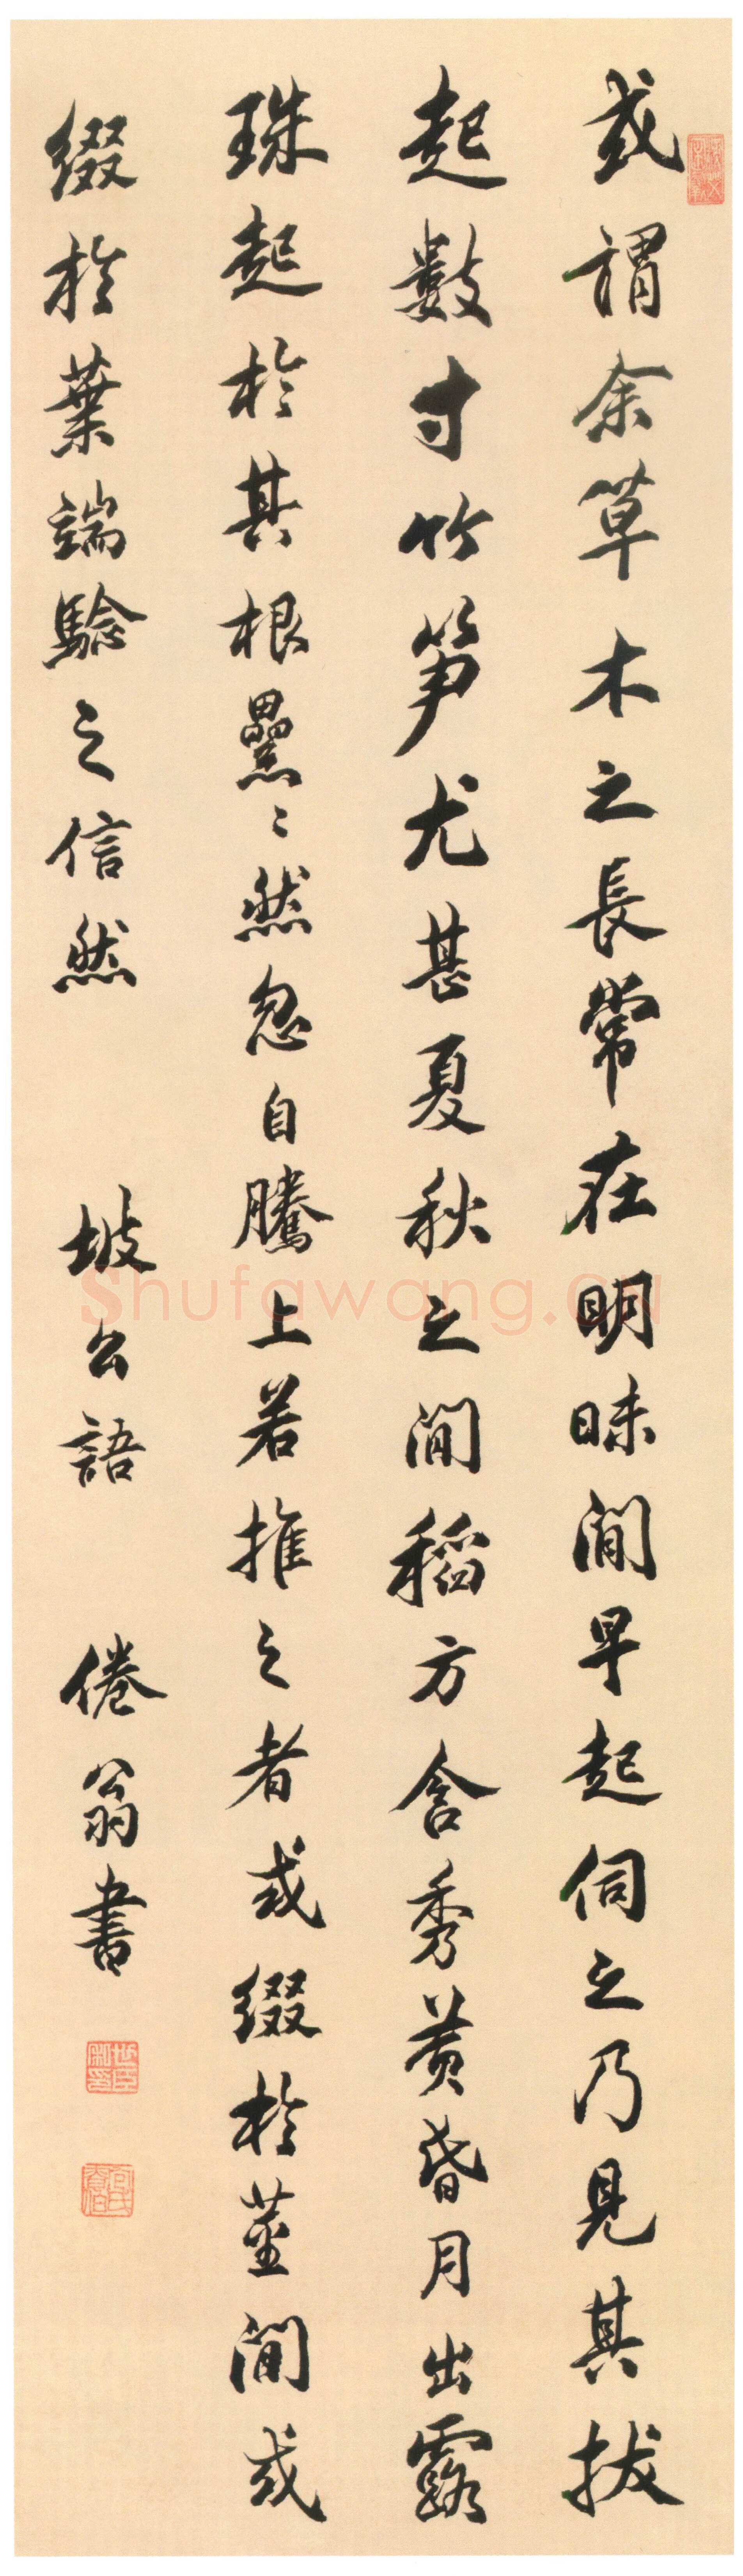 或謂余草木之長常在明昧間早起伺之乃見其拔
起數寸竹筍尤甚夏秋之間稻方含秀黃昏月出露
珠起於其根纍〻然忽自騰上若推之者或綴於莖間或
綴於葉端驗之信然 坡公語 倦翁書
世臣私印
Shufawang.CN